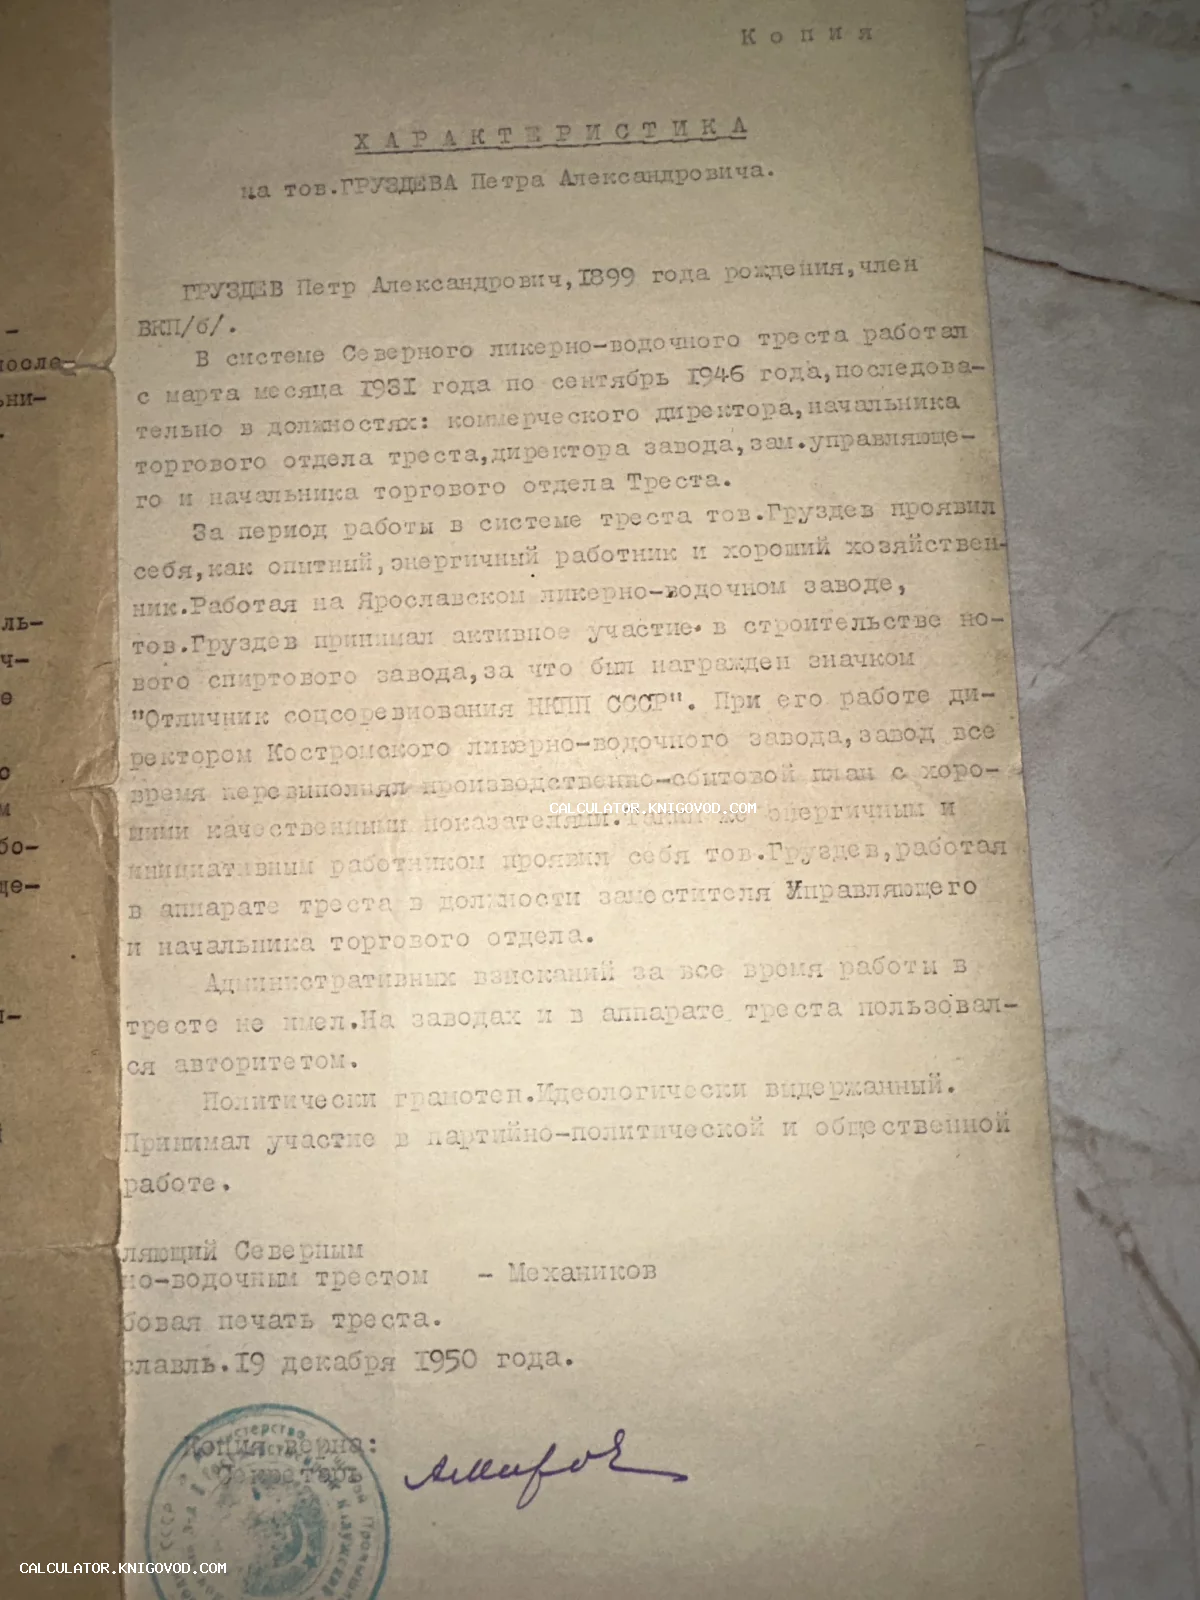 Копия
ХАРАКТЕРИСТИКА
на тов.ГРУЗДЕВА Петра Александровича.
ГРУЗДЕВ Петр Александрович,1899 года рождения,член
ВКП/б/.
В системе Северного ликерно-водочного треста работал
с марта месяца 1931 года по сентябрь 1946 года,последова-
тельно в должностях: коммерческого директора,начальника
торгового отдела треста,директора завода,зам.управляюще-
го и начальника торгового отдела Треста.
За период работы в системе треста тов.Груздев проявил
себя,как опытный,энергичный работник и хороший хозяйствен-
ник.Работая на Ярославском ликерно-водочном заводе,
тов.Груздев принимал активное участие в строительстве но-
вого спиртового завода,за что был награжден значком
"Отличник соцсоревнования НКПП СССР". При его работе ди-
ректором Костромского ликерно-водочного завода,завод все
время перевыполнял производственно-сбытовой план с хоро-
шими качественными показателями.Таким же энергичным и
инициативным работником проявил себя тов.Груздев,работая
в аппарате треста в должности заместителя Управляющего
и начальника торгового отдела.
Административных взысканий за все время работы в
тресте не имел.На заводах и в аппарате треста пользовал-
ся авторитетом.
Политически грамотен.Идеологически выдержанный.
Принимал участие в партийно-политической и общественной
работе.
ляющий Северным
но-водочным трестом - Механиков
бовая печать треста.
славль.19 декабря 1950 года.
Копия верна:
Секретарь
-
после-
ьни-
ль-
ч-
е
о
м
бо-
де-
CALCULATOR.KNIGOVOD.COM
CALCULATOR.KNIGOVOD.COM